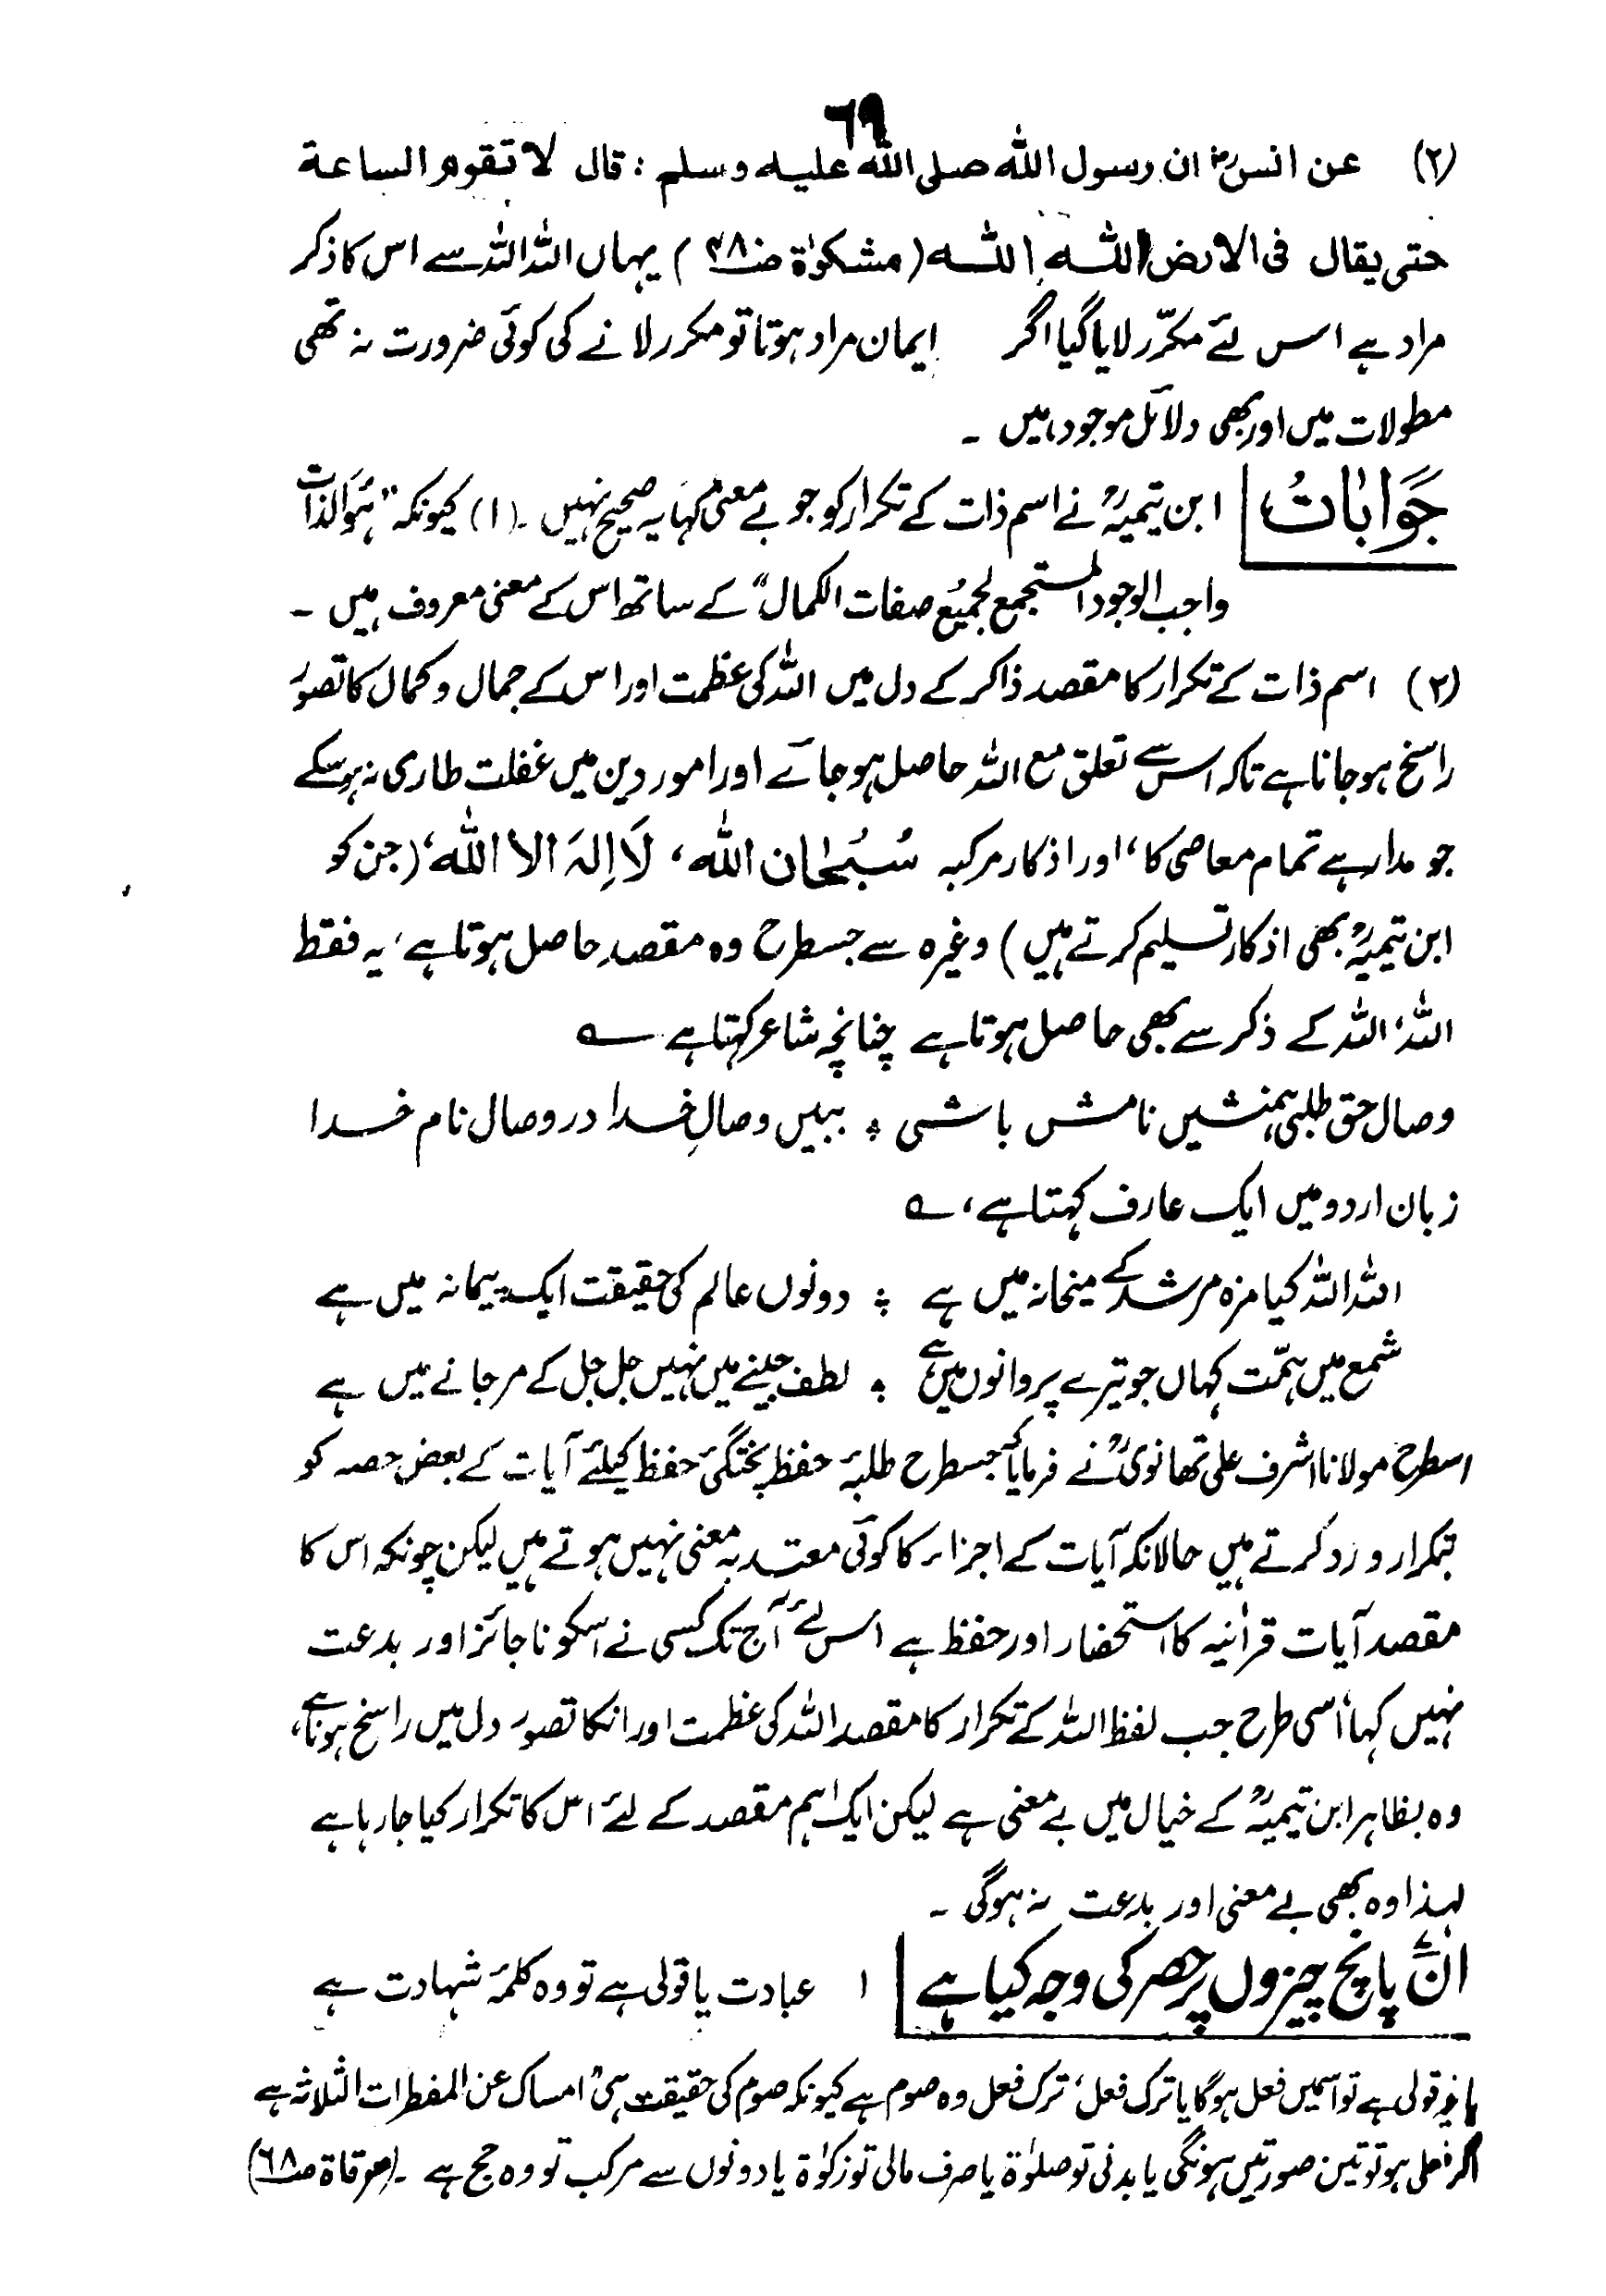 ٦٩
(۲) عن انسؓ ان رسول الله صلی الله علیه وسلم : قال لا تقوم الساعة
حتی یقال فی الارض الله الله (مشکوٰۃ صـ۴۸۰) یہاں اللہ اللہ سے اس کا ذکر
مراد ہے اس لئے مکرّر لایا گیا اگر ایمان مراد ہوتا تو مکرر لانے کی کوئی ضرورت نہ تھی
مطولات میں اور بھی دلائل موجود ہیں ۔
جَوَابَاتُ ابن تیمیہؒ نے اسم ذات کے تکرار کو جو بے معنی کہا یہ صحیح نہیں ۔ (۱) کیونکہ "ہُوَ الذات
واجب الوجود المستجمع لجمیع صفات الکمال" کے ساتھ اس کے معنی معروف ہیں ۔
(۲) اسم ذات کے تکرار کا مقصد ذاکر کے دل میں اللہ کی عظمت اور اس کے جمال و کمال کا تصوّر
راسخ ہو جانا ہے تاکہ اس سے تعلق مع اللہ حاصل ہو جائے اور امور دین میں غفلت طاری نہ ہو سکے
جو مدار ہے تمام معاصی کا، اور اذکار مرکبہ سُبْحَان الله، لَا اِلٰهَ الا الله، (جن کو
ابن تیمیہؒ بھی اذکار تسلیم کرتے ہیں) وغیرہ سے جسطرح وہ مقصد حاصل ہوتا ہے، یہ فقط
اللہ، اللہ کے ذکر سے بھی حاصل ہوتا ہے چنانچہ شاعر کہتا ہے ؎
وصال حق طلبی ہمنشیں نامش باشی ؛ ببیں وصالِ خدا در وصال نام خدا
زبان اردو میں ایک عارف کہتا ہے، ؎
اللہ اللہ کیا مزہ مرشد کے میخانہ میں ہے ؛ دونوں عالم کی حقیقت ایک پیمانہ میں ہے
شمع میں ہمّت کہاں جو تیرے پروانوں میں ہے ؛ لطف جینے میں نہیں جل جل کے مر جانے میں ہے
اسطرح مولانا اشرف علی تھانویؒ نے فرمایا کہ جسطرح طلبۂ حفظ پختگیٔ حفظ کیلئے آیات کے بعض حصہ کو
بتکرار ورد کرتے ہیں حالانکہ آیات کے اجزاء کا کوئی معتد بہ معنی نہیں ہوتے ہیں لیکن چونکہ اس کا
مقصد آیات قرآنیہ کا استحضار اور حفظ ہے اس لئے آج تک کسی نے اسکو ناجائز اور بدعت
نہیں کہا، اسی طرح جب لفظ اللہ کے تکرار کا مقصد اللہ کی عظمت اور انکا تصور دل میں راسخ ہونا ہے،
وہ بظاہر ابن تیمیہؒ کے خیال میں بے معنی ہے لیکن ایک اہم مقصد کے لئے اس کا تکرار کیا جا رہا ہے
لہذا وہ بھی بے معنی اور بدعت نہ ہوگی ۔
انؔ پانچ چیزوں پر حصر کی وجہ کیا ہے ۱ عبادت یا قولی ہے تو وہ کلمۂ شہادت ہے
یا غیر قولی ہے تو اسمیں فعل ہوگا یا ترک فعل، ترک فعل وہ صوم ہے کیونکہ صوم کی حقیقت ہی "امساک عن المفطرات الثلاثہ ہے
اگر فعلی ہو تو تین صورتیں ہونگی یا بدنی تو صلوٰۃ یا صرف مالی تو زکوٰۃ یا دونوں سے مرکب تو وہ حج ہے ۔ (مرقاۃ صـ٦٨)